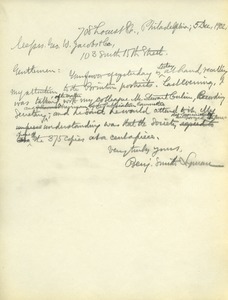 708 Locust St., Philadelphia, 5 Dec., 1902.
Messrs. Geo. W. Jacobs & Co.,
103 South 15th Street
Gentlemen: Your favor of yesterday at hand recalling
my attention to the portraits. Last evening, I
was talking with my colleague Mr. Stewart Culin, Recording
Secretary, and he said he would attend to it. My
understanding was that the Society agreed
the 375 copies at a cent apiece.
Very truly yours,
Benj. Smith Lyman